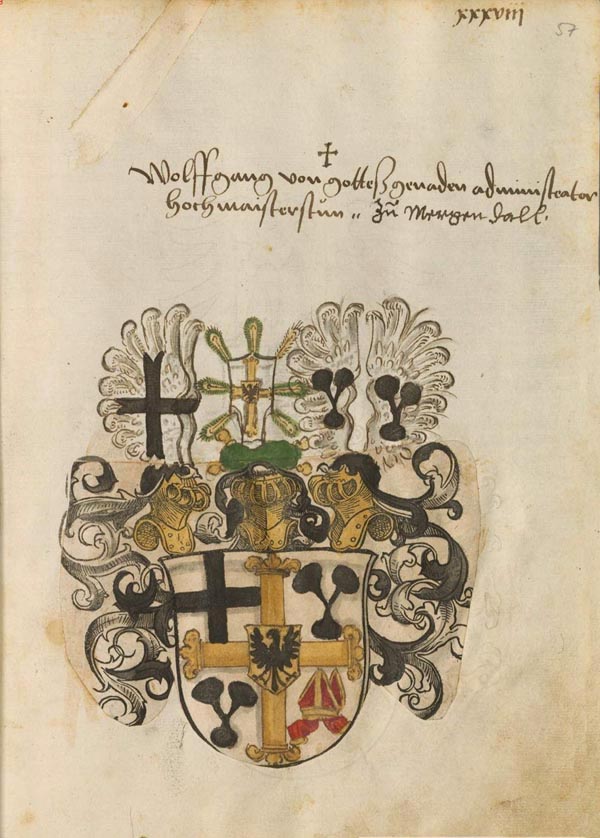 xxxviii
57
Wolffgang von gotteß genaden administrator
hochmaisterstun zů Mergendall.